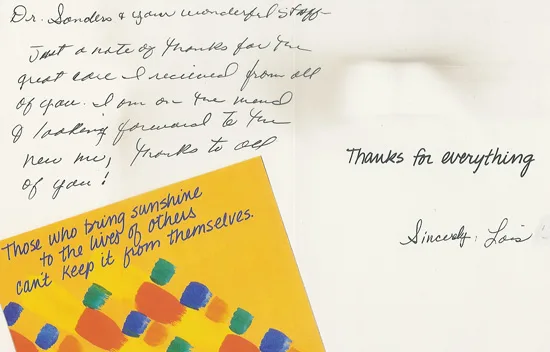 Dr. Sanders & your wonderful staff
Just a note of thanks for the
great care I recieved from all
of you. I am on the mend
& looking forward to the
new me, thanks to all
of you!
Those who bring sunshine
to the lives of others
can't keep it from themselves.
Thanks for everything
Sincerely, Lois